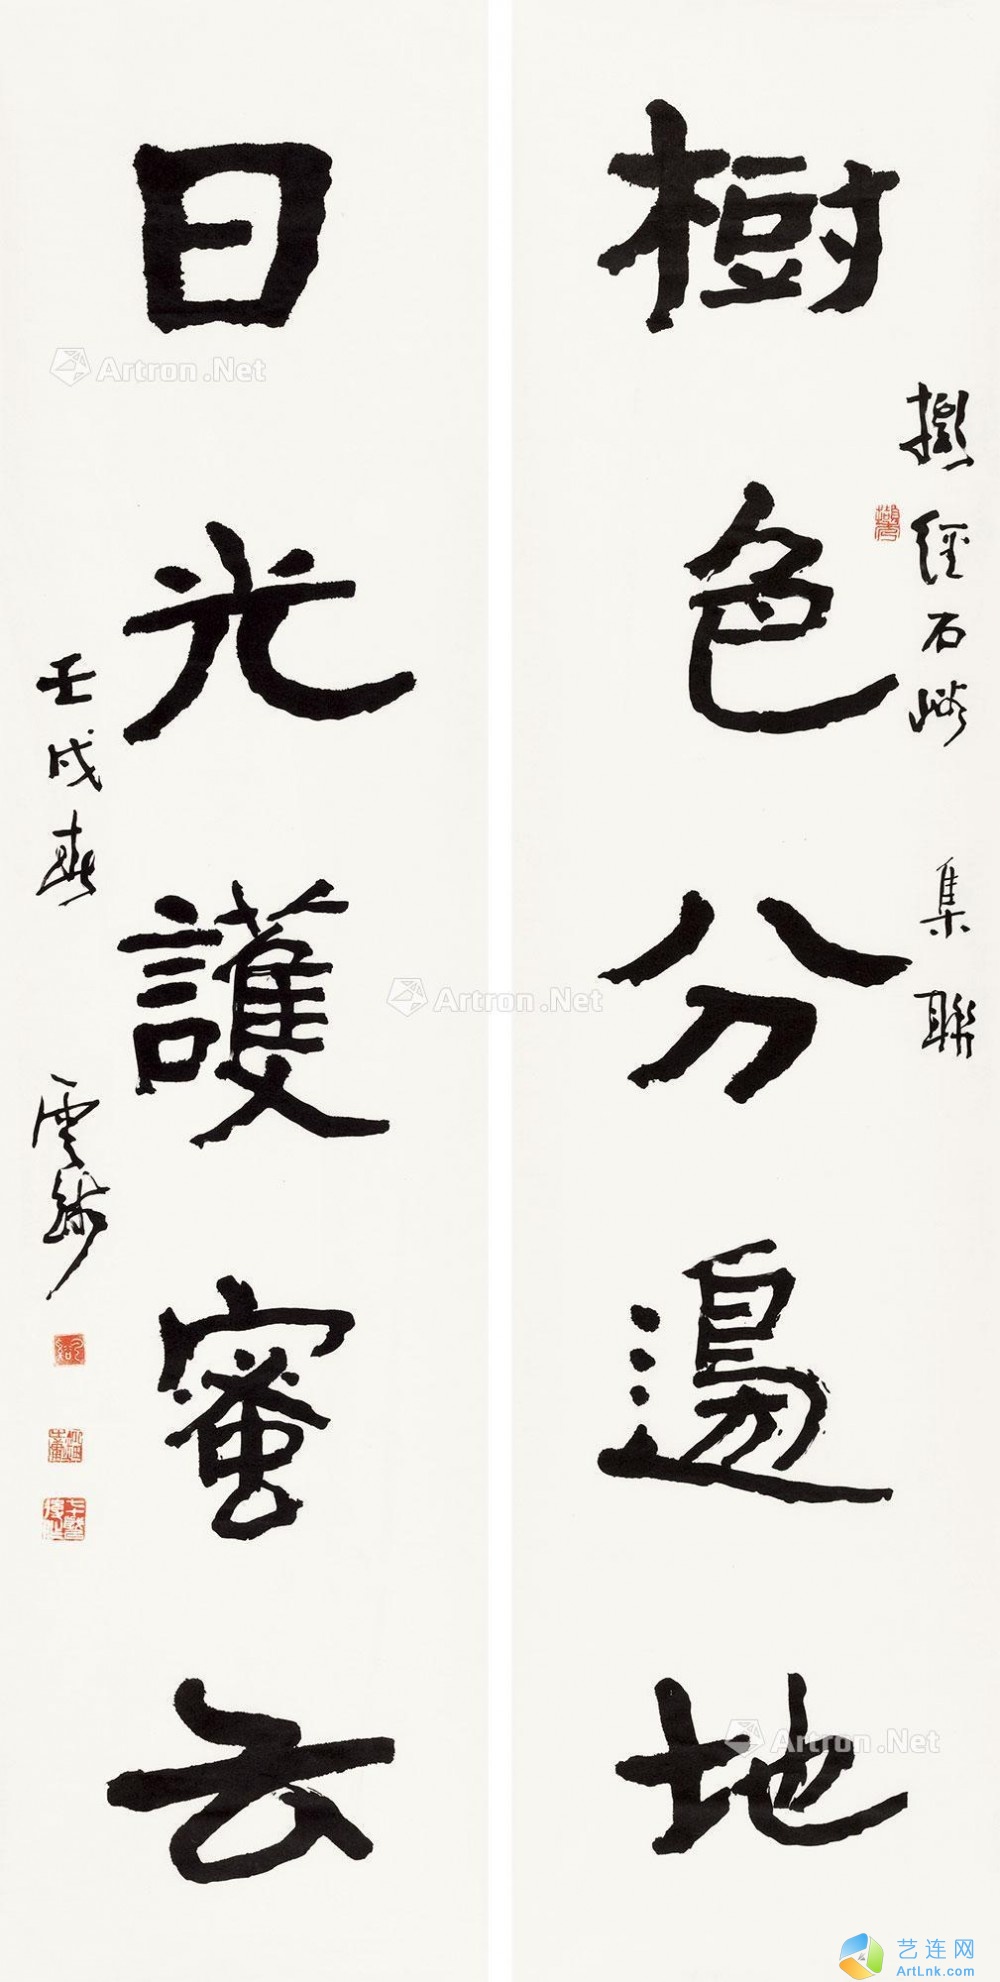 樹色分邊地
撫經石峪 集聯
日光護蜜云
壬戌春 雲鄉
Artron.Net
Artron.Net
Artron.Net
艺连网
ArtLnk.com